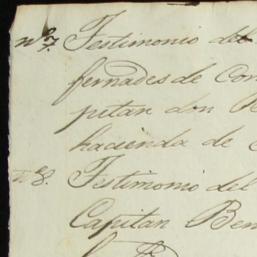 nº 7. Testimonio del
fernades de Con
pitan don
hacienda de
nº 8. Testimonio del
Capitan Ben